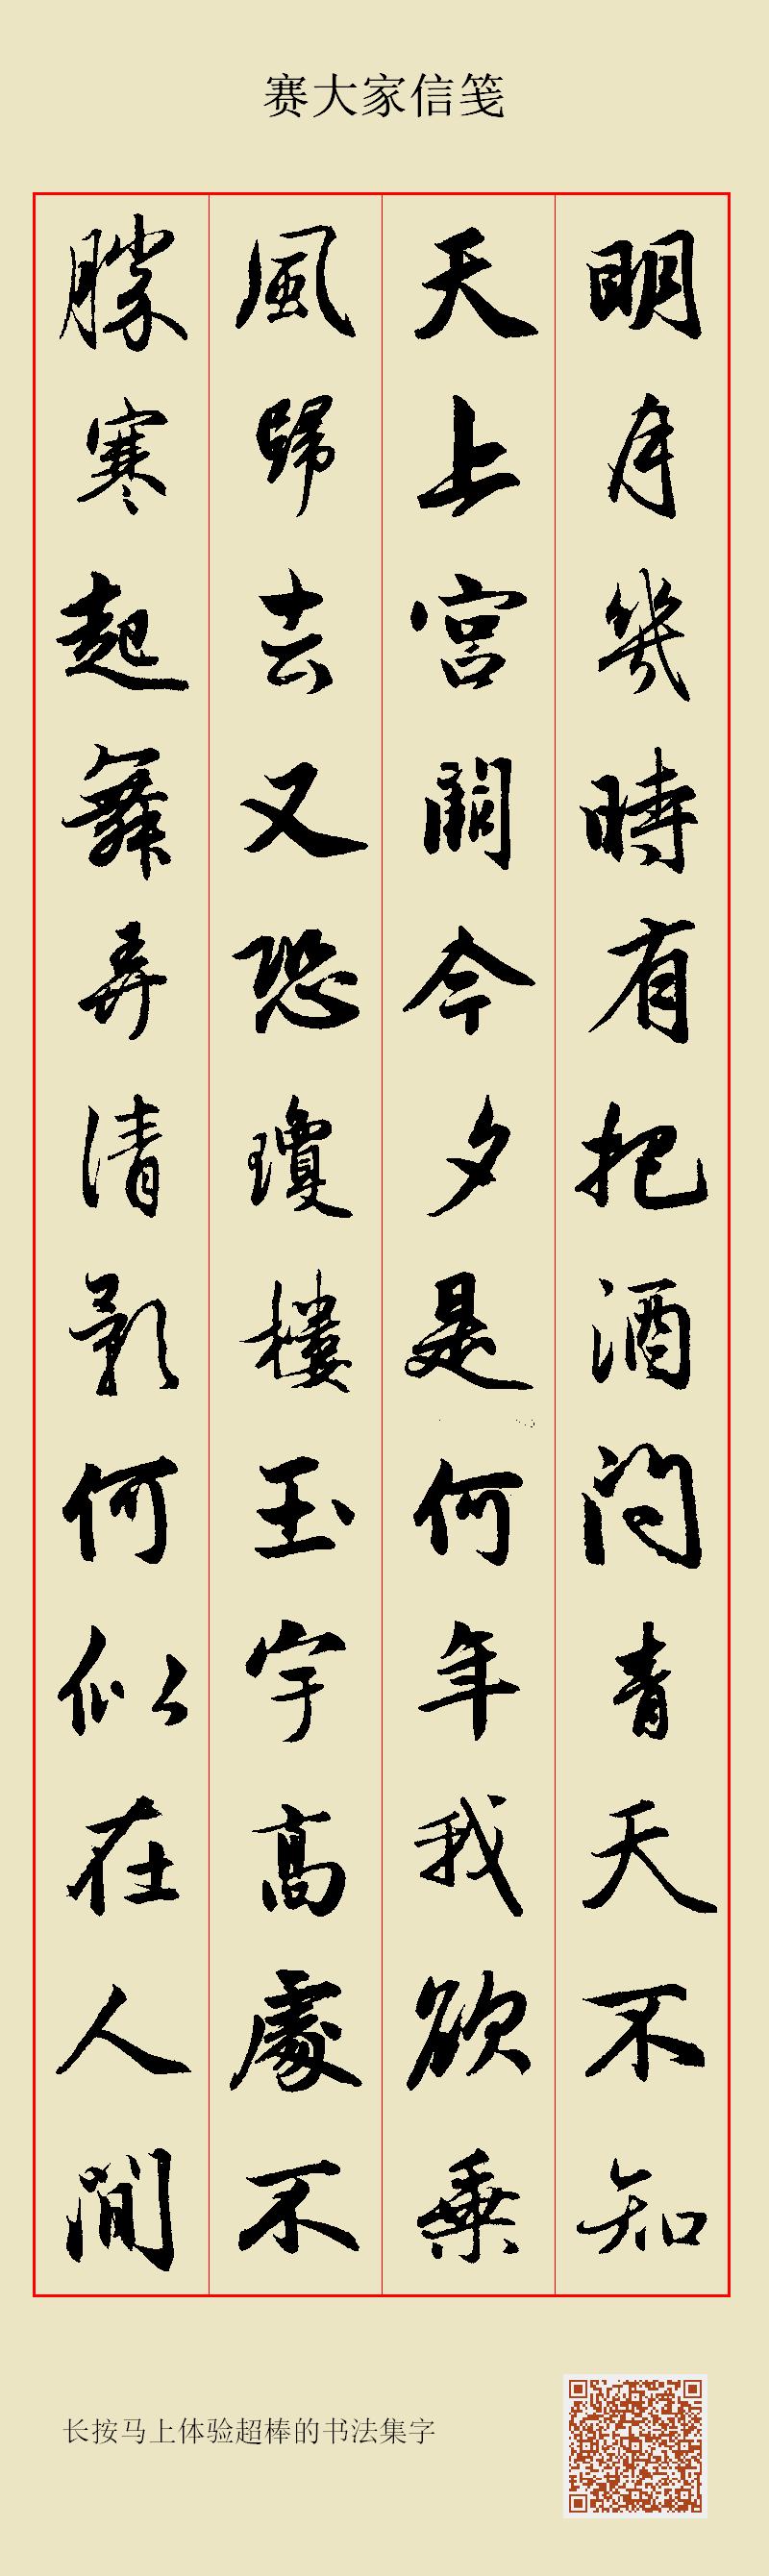 赛大家信笺
明月幾時有把酒問青天不知
天上宮闕今夕是何年我欲乗
風歸去又恐瓊樓玉宇高處不
勝寒起舞弄清影何似在人間
长按马上体验超棒的书法集字